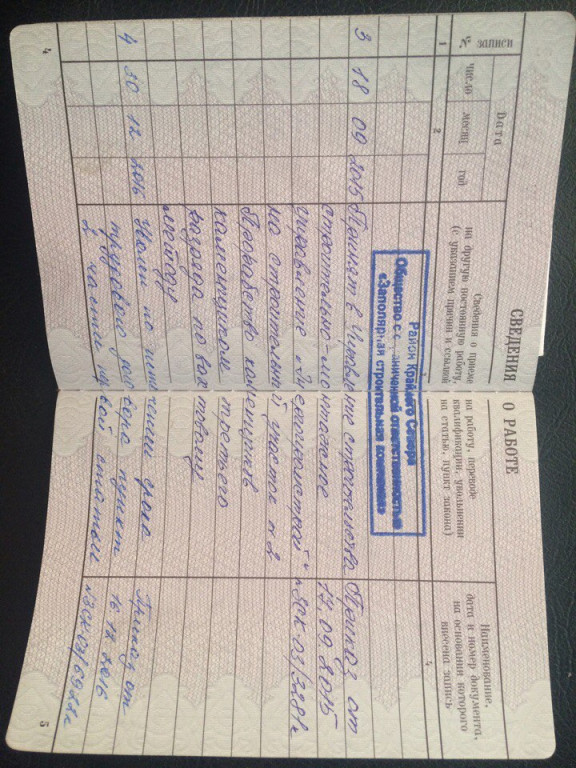 СВЕДЕНИЯ О РАБОТЕ
№ записи
Дата
число
месяц
год
Сведения о приеме на работу, переводе
на другую постоянную работу, квалификации, увольнении
(с указанием причин и ссылкой на статью, пункт закона)
Наименование,
дата и номер документа,
на основании которого
внесена запись
1
2
4
Район Крайнего Севера
Общество с ограниченной ответственностью
«Заполярная строительная компания»
3 18 09 2015 Принят в Управление строительства Приказ от
строительно-монтажное 17.09.2015
управление
на строительный участок №2
каменщиком третьего
разряда по вахтовому
методу
4 30 12 2016 Уволен по истечении срока Приказ от
трудового договора пункт 16.12.2016
2 части первой статьи
4
5